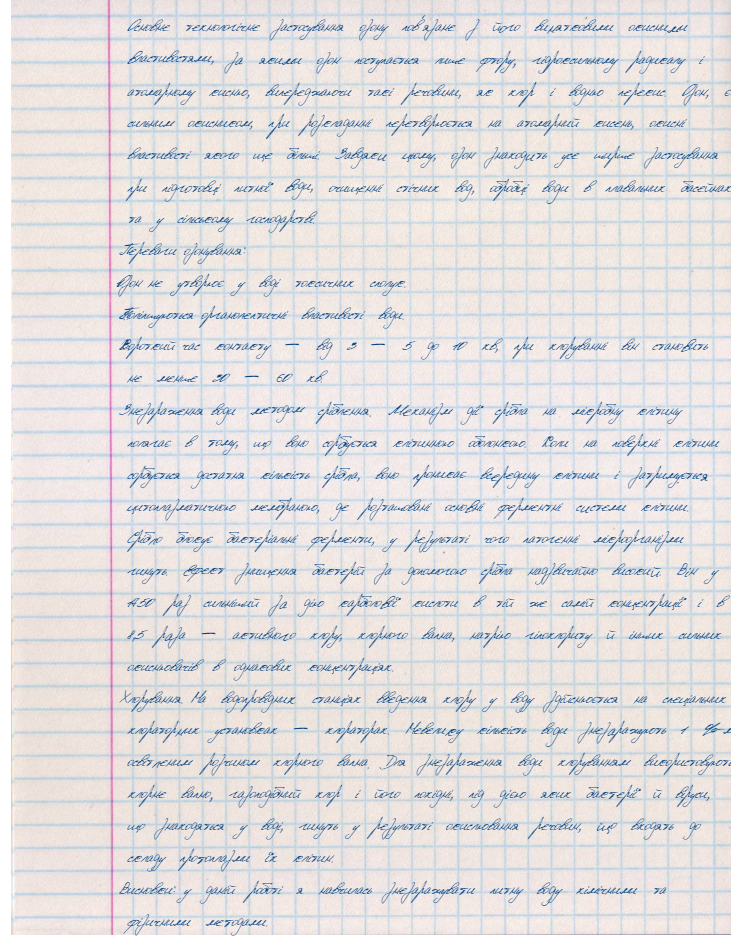 Основне технологічне застосування озону пов'язане з його винятковими окисними
властивостями, за якими озон поступається лише фтору, гідроксильному радикалу і
атомарному кисню, випереджаючи такі речовини, як хлор і водню перекис. Озон, є
сильним окисником, при розкладанні перетворюється на атомарний кисень, окисні
властивості якого ще більші. Завдяки цьому, озон знаходить усе ширше застосування
при підготовці питної води, очищенні стічних вод, обробці води в плавальних басейнах
та у сільському господарстві.
Переваги озонування:
Озон не утворює у воді токсичних сполук.
Поліпшуються органолептичні властивості води.
Короткий час контакту — від 3 — 5 до 10 хв, при хлоруванні він становить
не менше 30 — 60 хв.
Знезараження води методом сріблення. Механізм дії срібла на мікробну клітину
полягає в тому, що воно сорбується клітинною оболонкою. Коли на поверхні клітини
сорбується достатня кількість срібла, воно проникає всередину клітини і затримується
цитоплазматичною мембраною, де розташовані основні ферментні системи клітини.
Срібло блокує бактеріальні ферменти, у результаті чого патогенні мікроорганізми
гинуть. Ефект знищення бактерій за допомогою срібла надзвичайно високий. Він у
1450 раз сильніший за дію карболової кислоти в тій же самій концентрації і в
4,5 раза — активного хлору, хлорного вапна, натрію гіпохлориту й інших сильних
окиснювачів в однакових концентраціях.
Хлорування. На водопровідних станціях введення хлору у воду здійснюється на спеціальних
хлораторних установках — хлораторах. Невелику кількість води знезаражують 1 %-м
освітленим розчином хлорного вапна. Для знезараження води хлоруванням використовують
хлорне вапно, газоподібний хлор і його похідні, під дією яких бактерії й віруси,
що знаходяться у воді, гинуть у результаті окиснювання речовин, що входять до
складу протоплазми їх клітин.
Висновки: у даній роботі я навчилась знезаражувати питну воду хімічними та
фізичними методами.